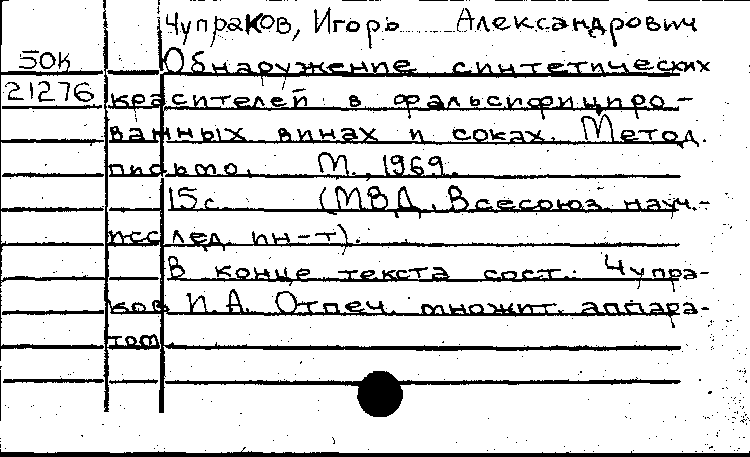 Чупраков, Игорь Александрович
50К Обнаружение синтетических
21276 красителей в фальсифициро-
ванных винах и соках. Метод.
письмо. М., 1969.
15с. (МВД. Всесоюз. науч.-
исслед. ин-т).
В конце текста сост.: Чупра-
ков И.А. Отпеч. множит. аппара-
том.